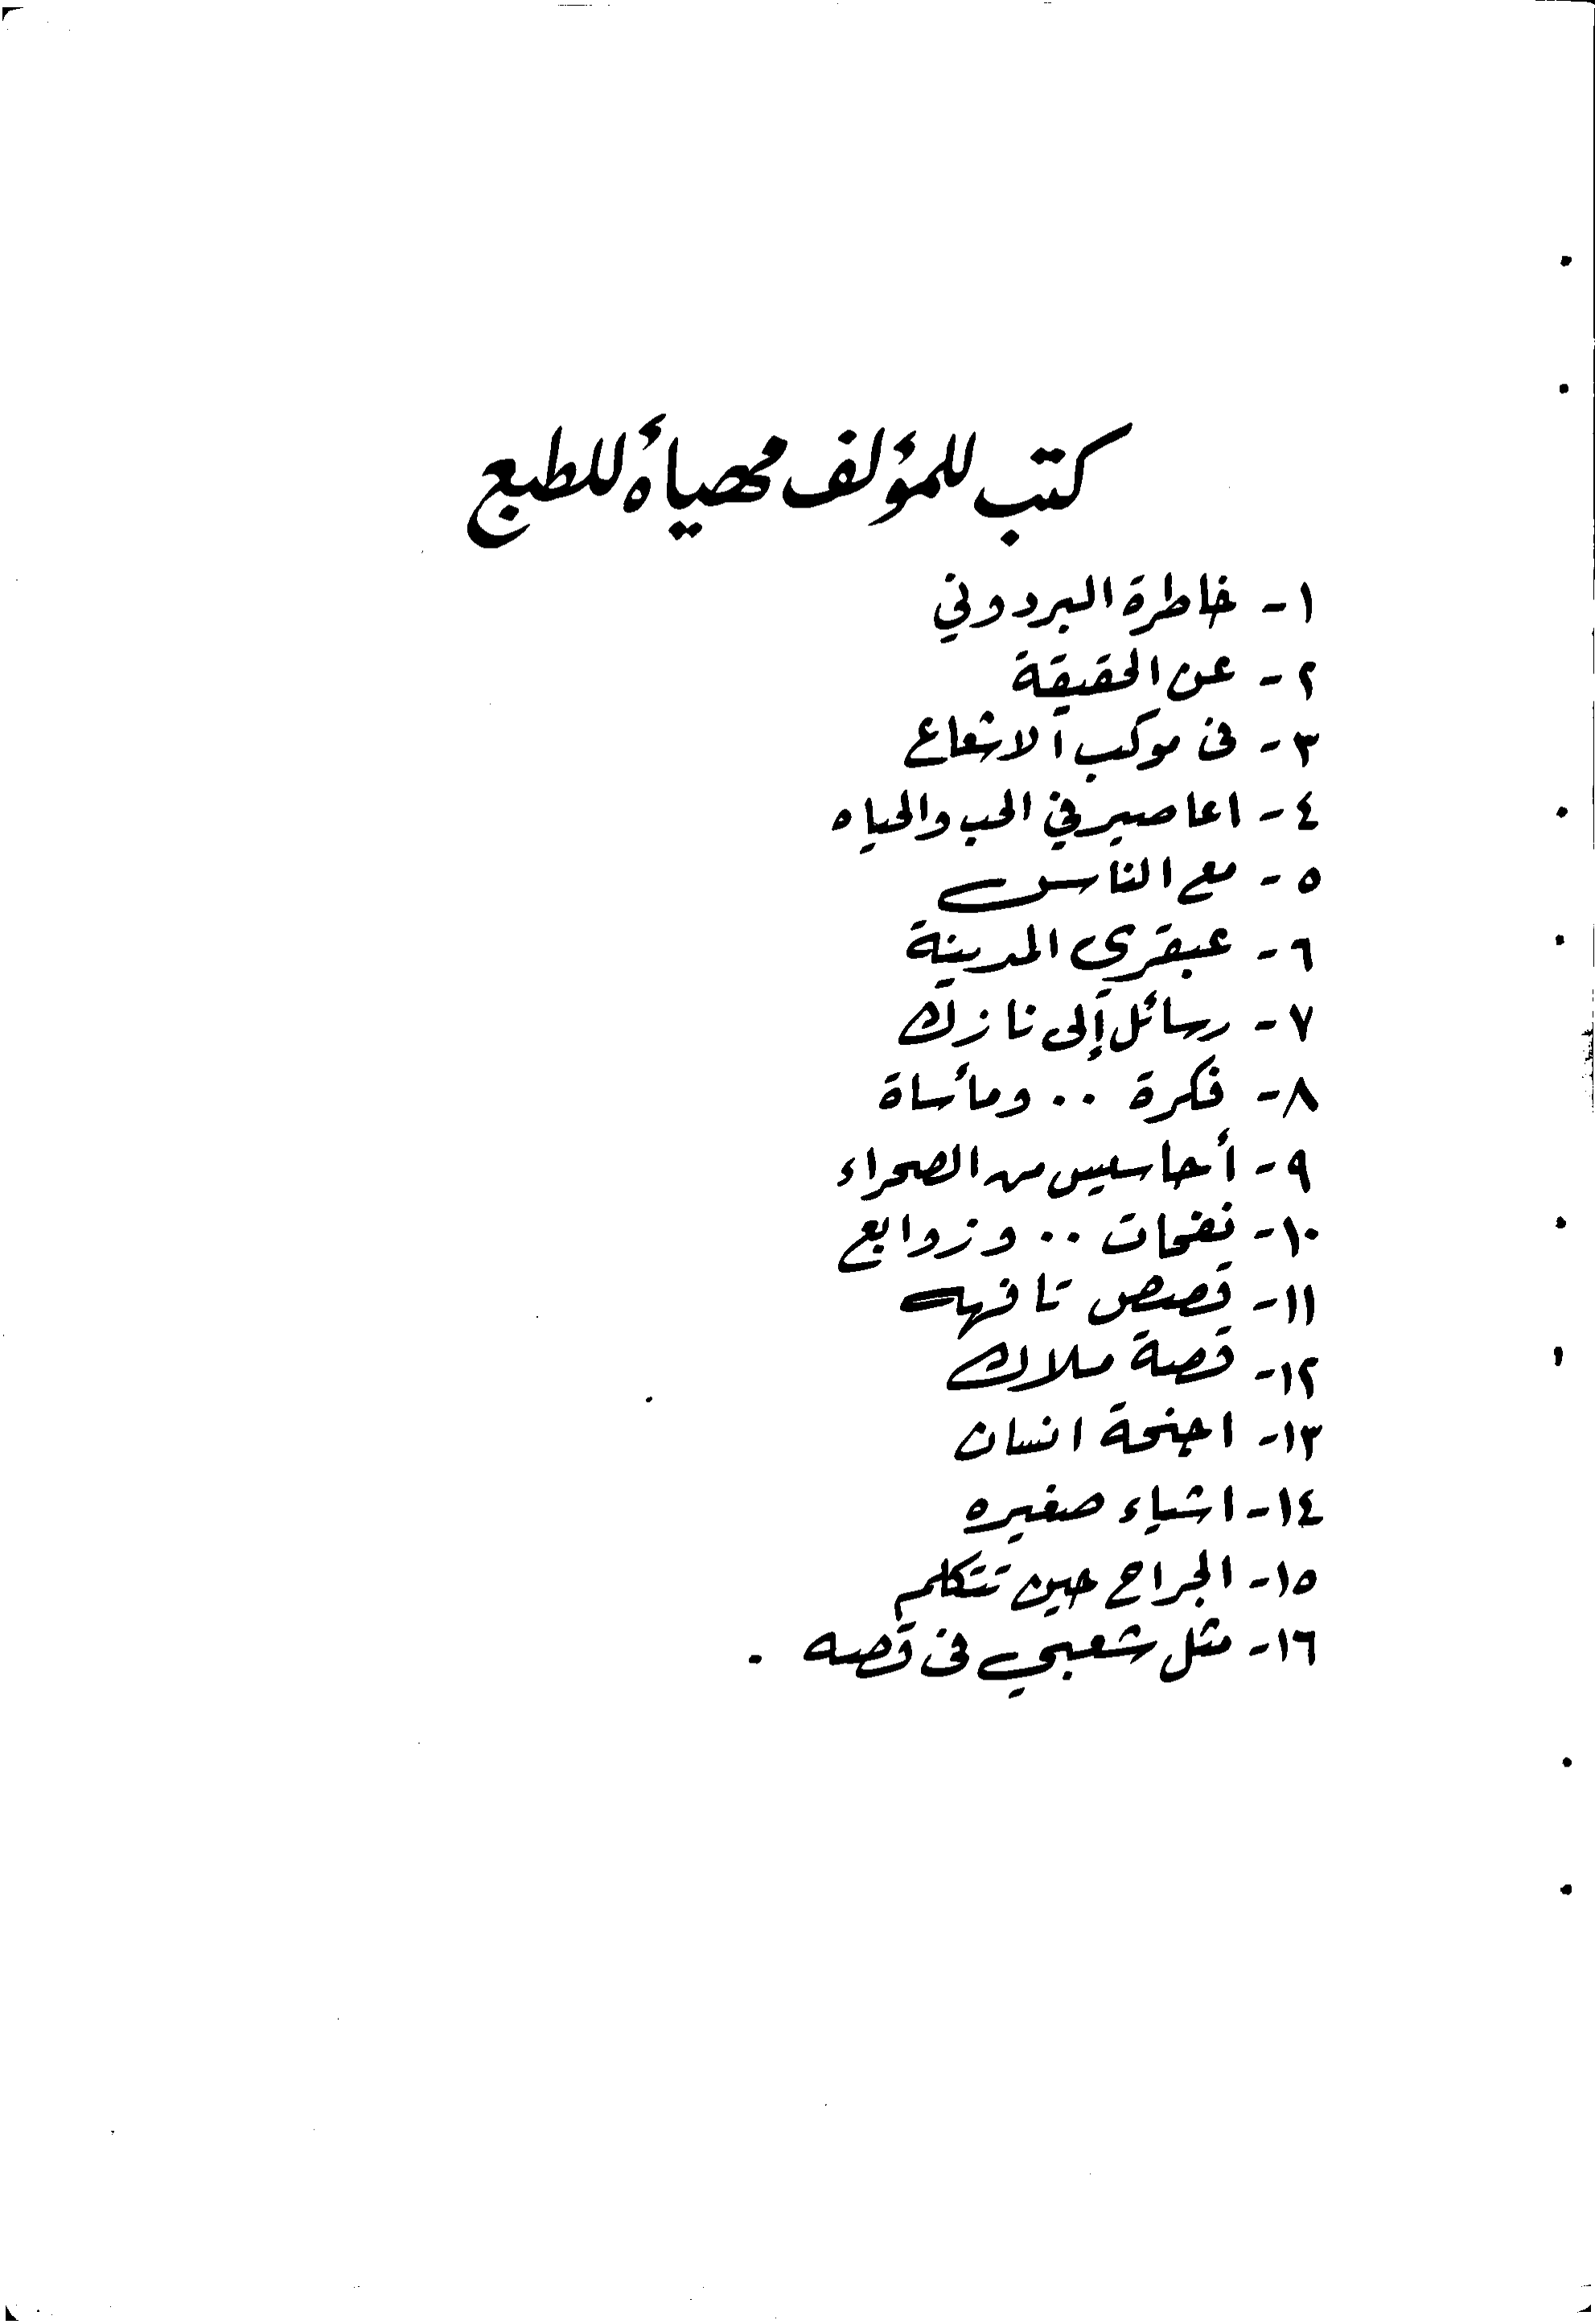 كتب للمؤلف مهيأه للطبع
١- خاطرة البردوني
٢- عن الحقيقة
٣- فى موكب الاشعاع
٤- اعاصير في الحب والحياه
٥- مع الناس
٦- عبقري المدينة
٧- رسائل إلى نازك
٨- فكرة ٠٠ ومأساة
٩- أحاسيس من الصحراء
١٠- نفحات ٠٠ وزوابع
١١- قصص تافهه
١٢- قصة ملاك
١٣- اجنحة انسان
١٤- اشياء صغيره
١٥- الجراح حين تتكلم
١٦- مثل شعبي فى قصه .